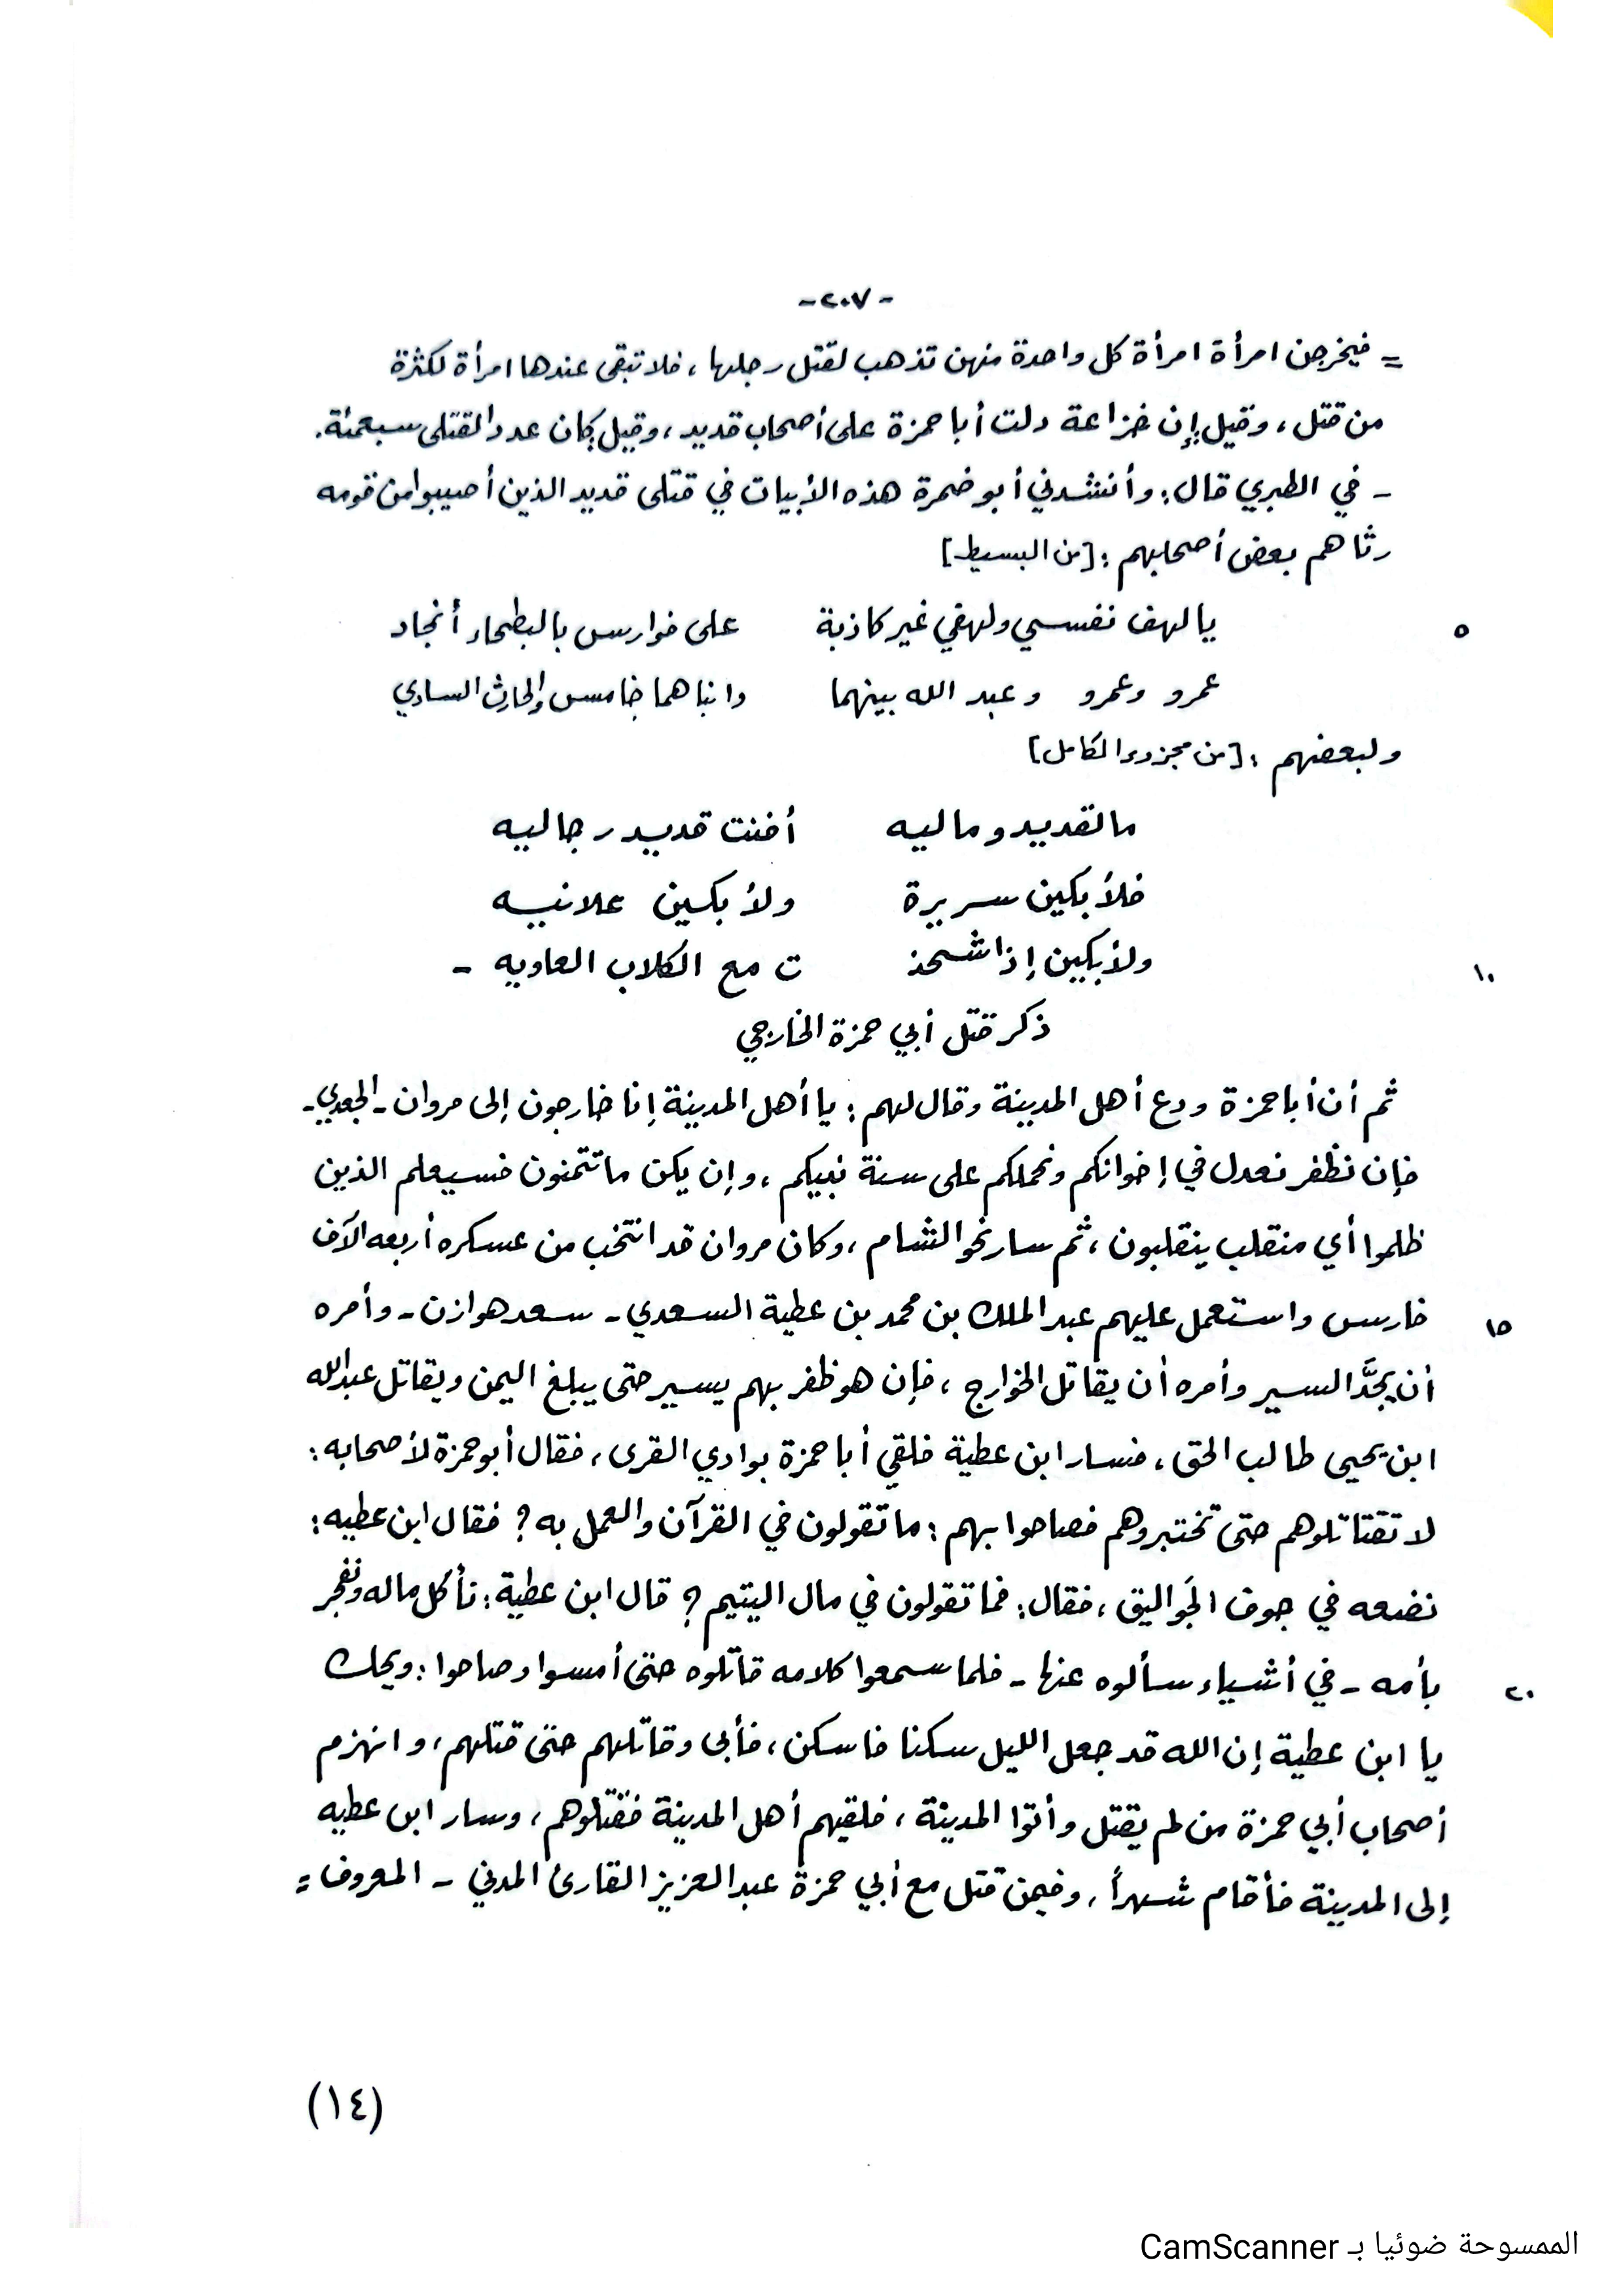 -٢٠٧-
= فيخرجن امرأة امرأة كل واحدة منهن تذهب لقتل رجلها ، فلا تبقى عندها امرأة لكثرة
من قتل ، وقيل إن خزاعة دلت أبا حمزة على أصحاب قديد ، وقيل كان عدد القتلى سبعمئة .
- في الطبري قال : وأنشدني أبو ضمرة هذه الأبيات في قتلى قديد الذين أصيبوا من قومه
رثاهم بعض أصحابهم : [من البسيط]
يا لهف نفسي ولهفي غير كاذبة على فوارس بالبطحاء أنجاد
٥
عمرو وعمرو وعبد الله بينهما وابناهما خامس والحارث السادي
ولبعضهم : [من مجزوء الكامل]
ما لقديد وما ليه أفنت قديد رجاليه
فلأبكين سريرة ولأبكين علانيه
ولأبكين إذا شحذ ت مع الكلاب العاويه -
١٠
ذكر قتل أبي حمزة الخارجي
ثم أن أبا حمزة ودع أهل المدينة وقال لهم : يا أهل المدينة إنا خارجون إلى مروان - الجعدي -
فإن نظفر نعدل في إخوانكم ونحملكم على سنة نبيكم ، وإن يكن ما تتمنون فسيعلم الذين
ظلموا أي منقلب ينقلبون ، ثم سار نحو الشام ، وكان مروان قد انتخب من عسكره أربعه الآف
فارس واستعمل عليهم عبد الملك بن محمد بن عطية السعدي - سعد هوازن - وأمره
١٥
أن يجدَّ السير وأمره أن يقاتل الخوارج ، فإن هو ظفر بهم يسير حتى يبلغ اليمن ويقاتل عبدالله
ابن يحيى طالب الحق ، فسار ابن عطية فلقي أبا حمزة بوادي القرى ، فقال أبو حمزة لأصحابه :
لا تقتاتلوهم حتى تختبروهم فصاحوا بهم : ما تقولون في القرآن والعمل به ؟ فقال ابن عطيه :
نضعه في جوف الجَواليق ، فقال : فما تقولون في مال اليتيم ؟ قال ابن عطية : نأكل ماله ونفجر
بأمه - في أشياء سألوه عنها - فلما سمعوا كلامه قاتلوه حتى أمسوا وصاحوا : ويحك
٢٠
يا ابن عطية إن الله قد جعل الليل سكنا فاسكن ، فأبى وقاتلهم حتى قتلهم ، وانهزم
أصحاب أبي حمزة من لم يقتل وأتوا المدينة ، فلقيهم أهل المدينة فقتلوهم ، وسار ابن عطيه
إلى المدينة فأقام شهراً ، وفيمن قتل مع أبي حمزة عبد العزيز القارئ المدني - المعروف =
(١٤)
الممسوحة ضوئيا بـ CamScanner